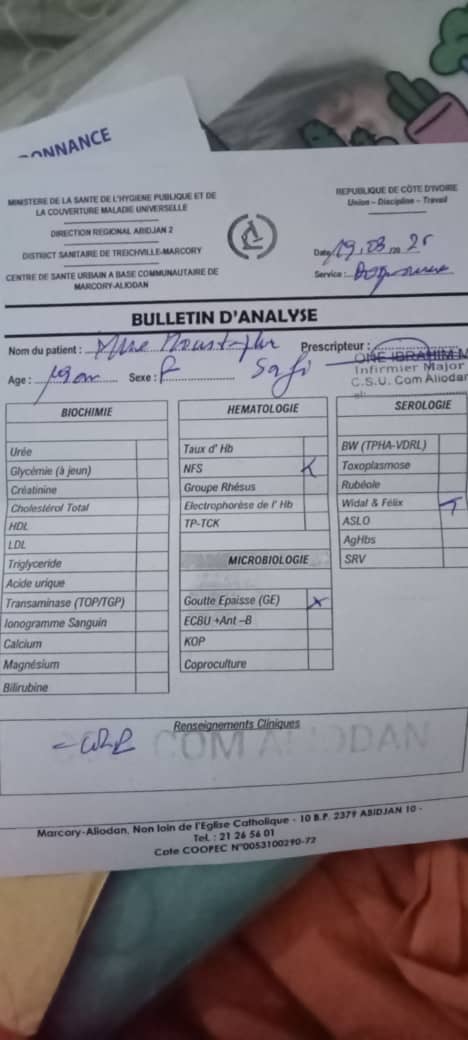 ONNANCE
MINISTERE DE LA SANTE DE L'HYGIENE PUBLIQUE ET DE
LA COUVERTURE MALADIE UNIVERSELLE
DIRECTION REGIONAL ABIDJAN 2
DISTRICT SANITAIRE DE TREICHVILLE-MARCORY
CENTRE DE SANTE URBAIN A BASE COMMUNAUTAIRE DE
MARCORY-ALIODAN
REPUBLIQUE DE CÔTE D'IVOIRE
Union – Discipline – Travail
Date 19.03.20 25
Service :
BULLETIN D'ANALYSE
Nom du patient : Mme Moustapha Prescripteur :
Safi
ONE IBRAHIM M
Infirmier Major
C.S.U. Com Aliodan
Age : Sexe : F
BIOCHIMIE
Urée
Glycémie (à jeun)
Créatinine
Cholestérol Total
HDL
LDL
Triglyceride
Acide urique
Transaminase (TOP/TGP)
Ionogramme Sanguin
Calcium
Magnésium
Bilirubine
HEMATOLOGIE
Taux d' Hb
NFS
Groupe Rhésus
Electrophorèse de l' Hb
TP-TCK
MICROBIOLOGIE
Goutte Epaisse (GE) x
ECBU +Ant –B
KOP
Coproculture
SEROLOGIE
BW (TPHA-VDRL)
Toxoplasmose
Rubéole
Widal & Félix
ASLO
AgHbs
SRV
Renseignements Cliniques
COM ALIODAN
Marcory-Aliodan, Non loin de l'Eglise Catholique - 10 B.P. 2379 ABIDJAN 10 -
Tel. : 21 26 56 01
Cote COOPEC N°0053100290-72